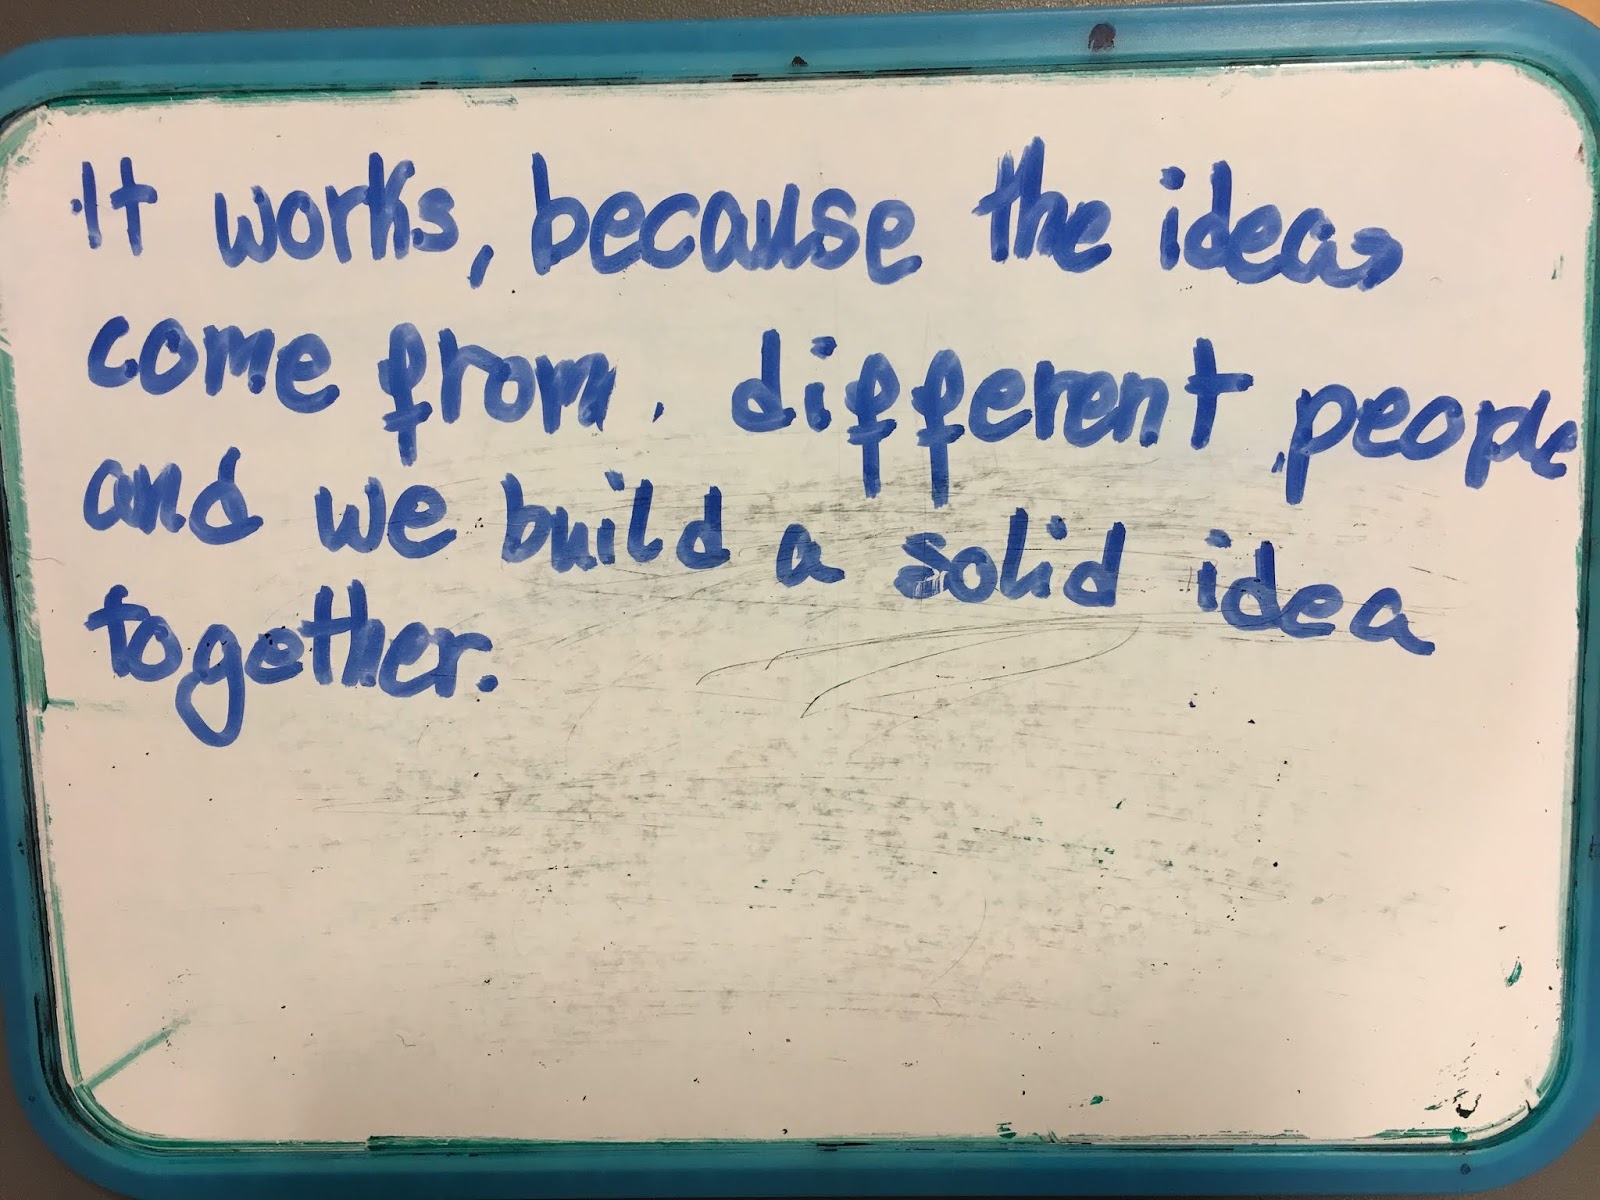 It works, because the ideas
come from different people
and we build a solid idea
together.